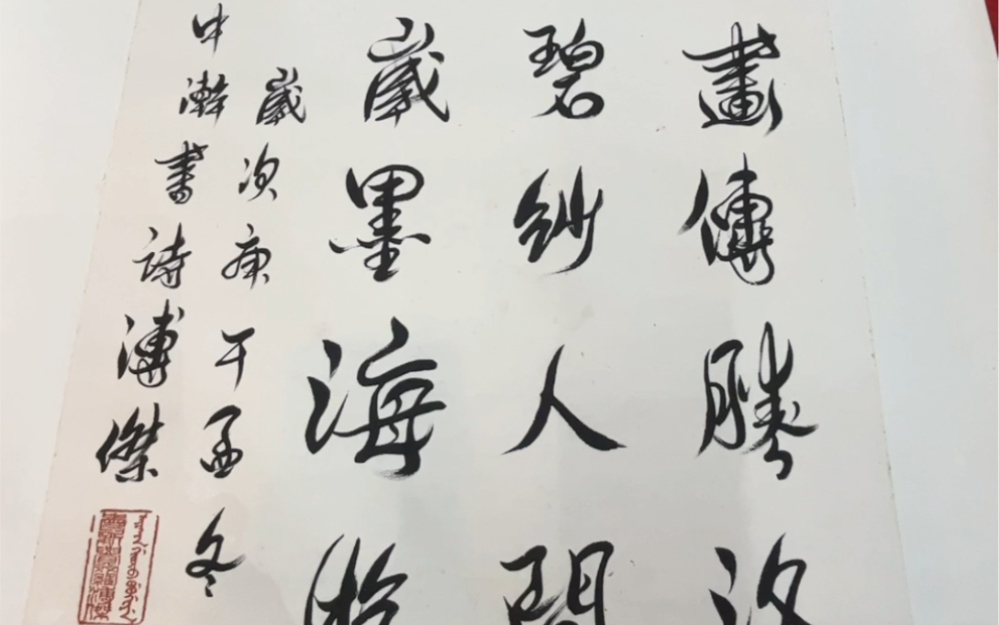 畫傳勝
碧紗人間
歲墨海
歲次庚午孟冬
中澣書詩溥傑